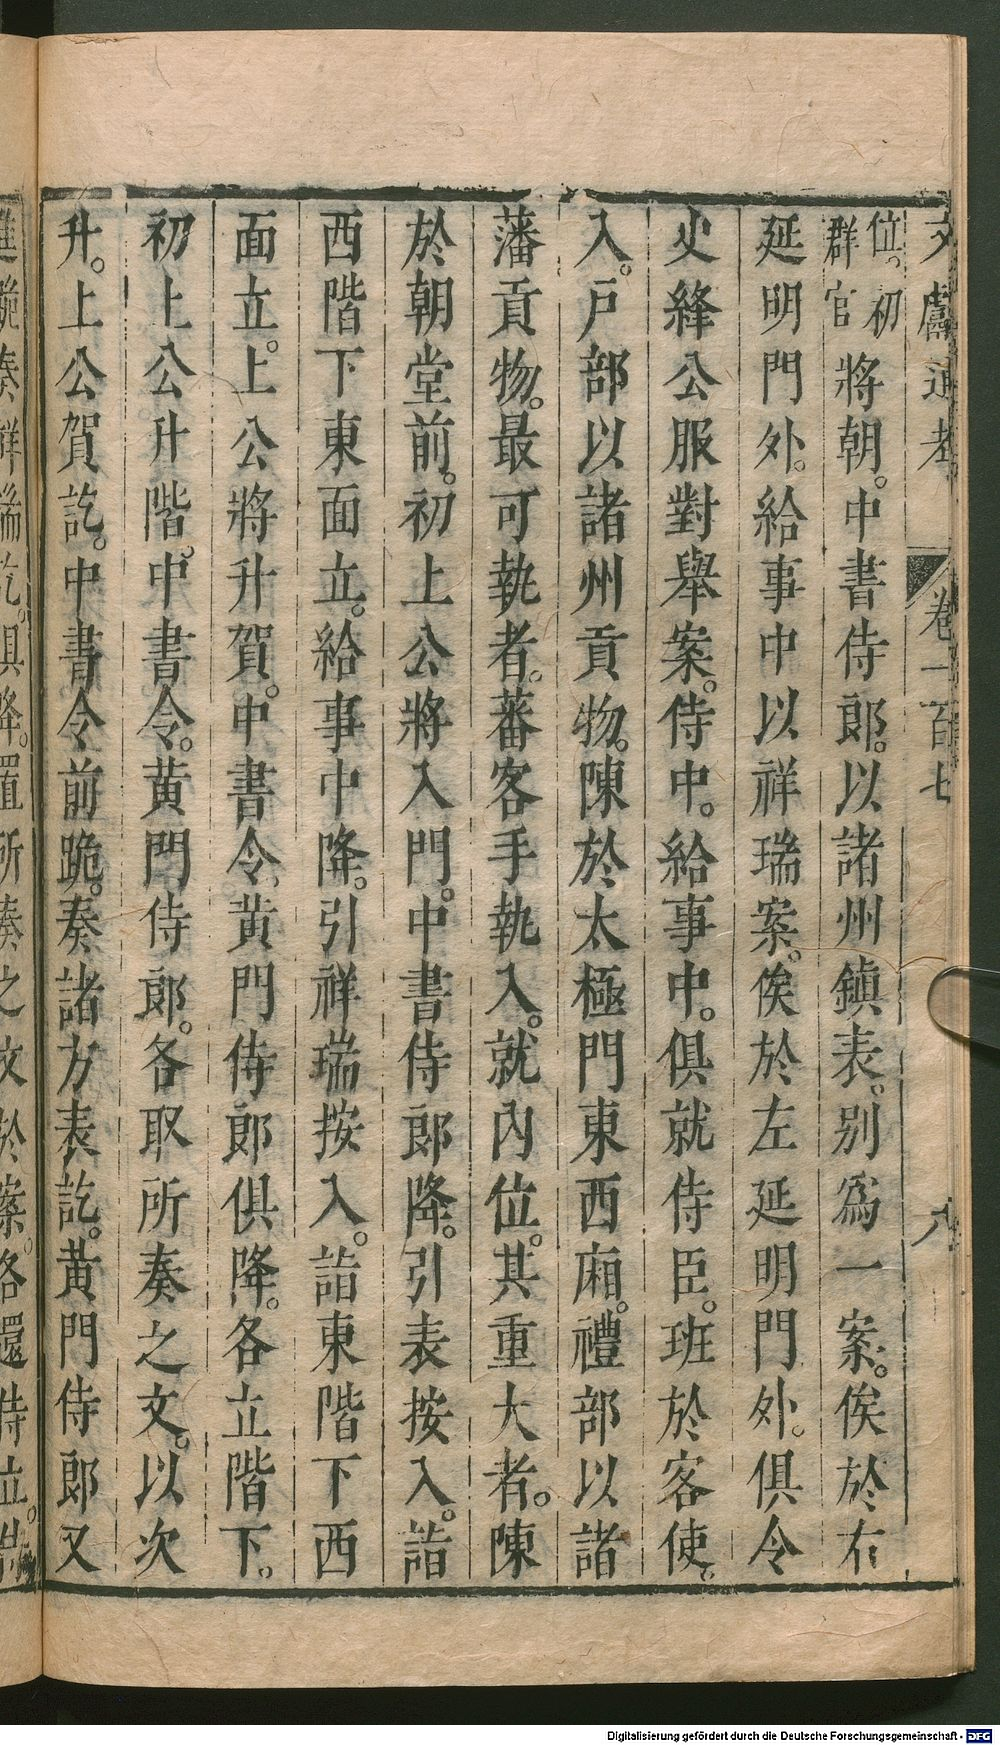 文獻通考 卷一百七 八
位。初群官將朝。中書侍郎。以諸州鎮表。別爲一案。俟於右
延明門外。給事中以祥瑞案。俟於左延明門外。俱令
史絳公服對舉案。侍中。給事中。俱就侍臣。班於客使。
入。戶部以諸州貢物。陳於太極門東西廂。禮部以諸
藩貢物。最可執者。蕃客手執入。就內位。其重大者。陳
於朝堂前。初上公將入門。中書侍郎降。引表按入。詣
西階下東面立。給事中降。引祥瑞按入。詣東階下西
面立。上公將升賀。中書令、黃門侍郎俱降。各立階下。
初上公升階。中書令。黃門侍郎。各取所奏之文。以次
升。上公賀訖。中書令前跪。奏諸方表訖。黃門侍郎又
進跪奏祥瑞訖。俱降。置所奏之文於案。各還侍立。
Digitalisierung gefördert durch die Deutsche Forschungsgemeinschaft - DFG